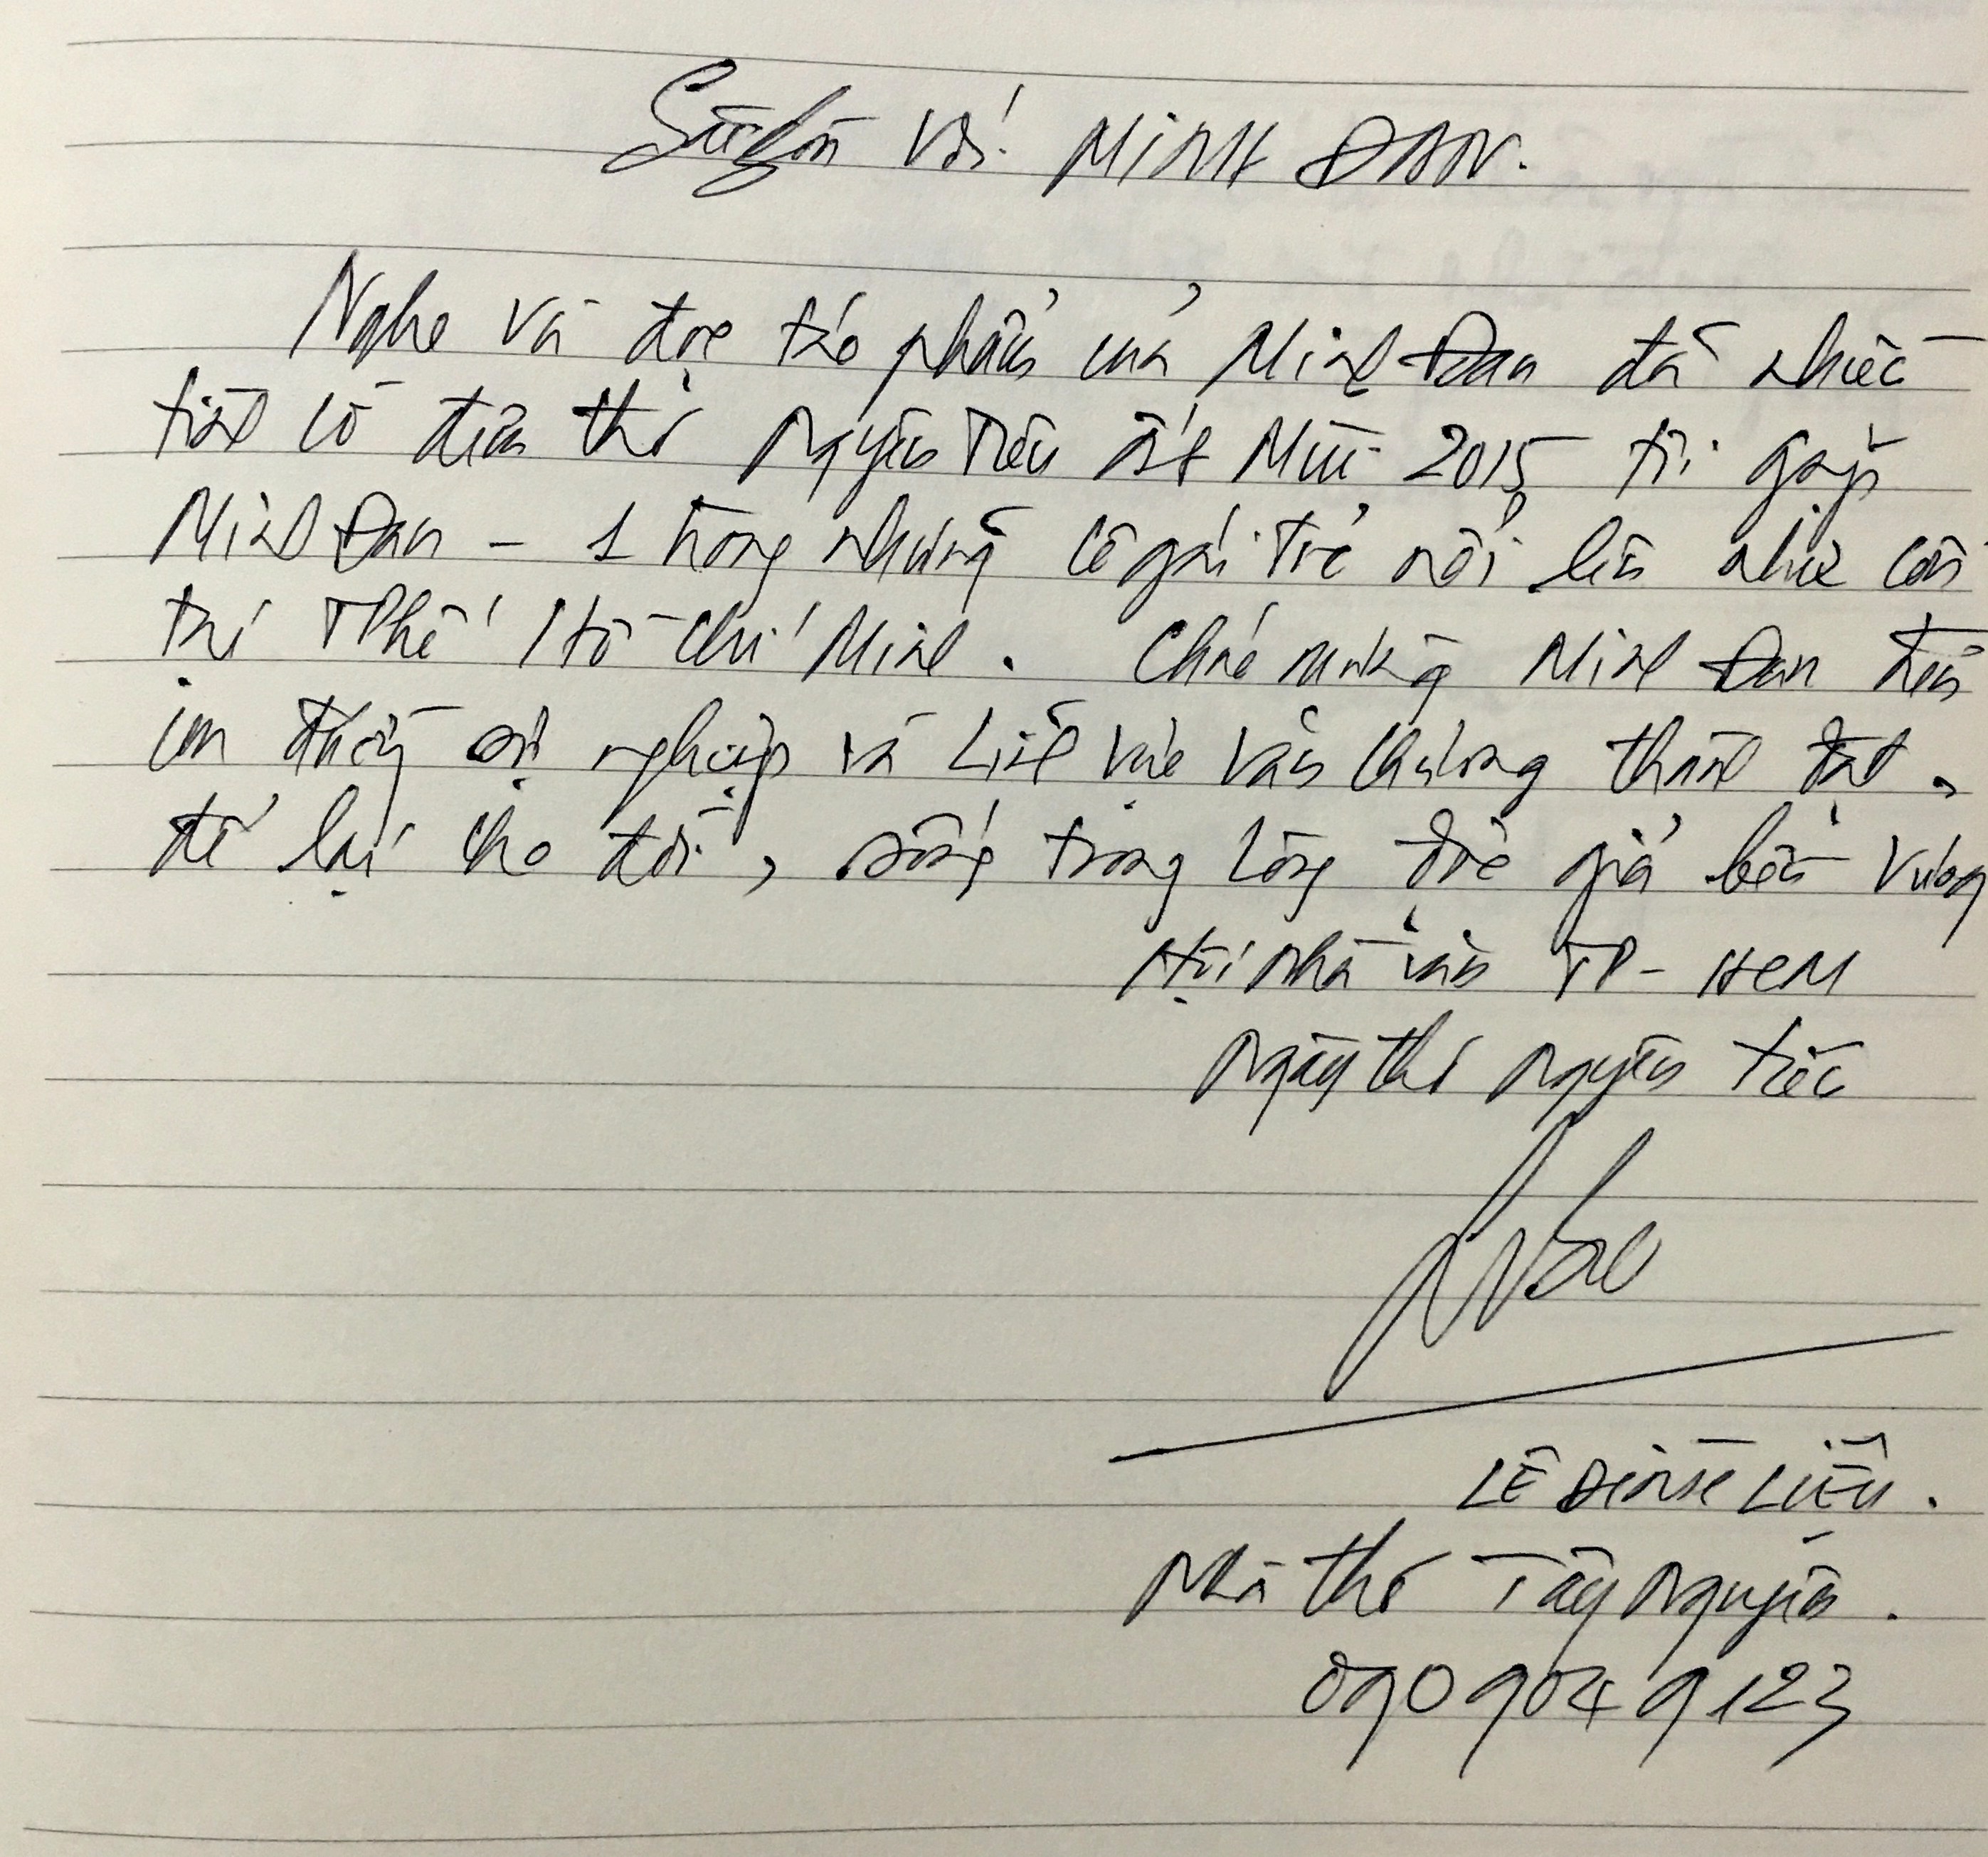 với MINH ĐAN.
Nghe và đọc tác phẩm của Minh Đan đã nhiều
tình cờ đến thơ Nguyên Tiêu Ất Mùi 2015 tôi gặp
Minh Đan - 1 trong những cô gái trẻ nổi lên như cồn
tại TPhố Hồ Chí Minh. Chúc mừng Minh Đan tiến
sự nghiệp và lĩnh vực văn chương thành đạt,
để lại cho đời, sống trong lòng độc giả bền vững
Hội nhà văn TP-HCM
Ngày thơ nguyên tiêu
LÊ ĐÌNH LIỆU.
Nhà thơ Tây Nguyên.
0909049123